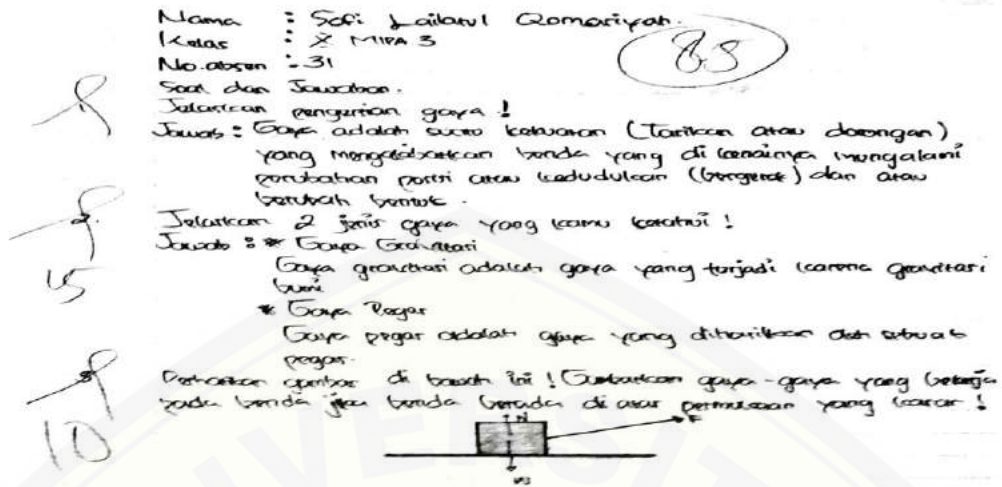 Nama : Sofi Lailatul Qomariyah.
Kelas : X MIPA 3
No.absen : 31
88
Soal dan Jawaban.
Jelaskan pengertian gaya !
Jawab : Gaya adalah suatu kekuatan (Tarikan atau dorongan)
yang mengakibatkan benda yang di kenainya mengalami
perubahan posisi atau kedudukan (bergerak) dan atau
berubah bentuk.
2.
Jelaskan 2 jenis gaya yang kamu ketahui !
Jawab : * Gaya Gravitasi
Gaya gravitasi adalah gaya yang terjadi karena gravitasi
bumi
15
* Gaya Pegas
Gaya pegas adalah gaya yang dihasilkan oleh sebuah
pegas.
Perhatikan gambar di bawah ini ! Gambarkan gaya-gaya yang bekerja
pada benda jika benda berada di atas permukaan yang kasar !
10
N
F
UNIVERSIT